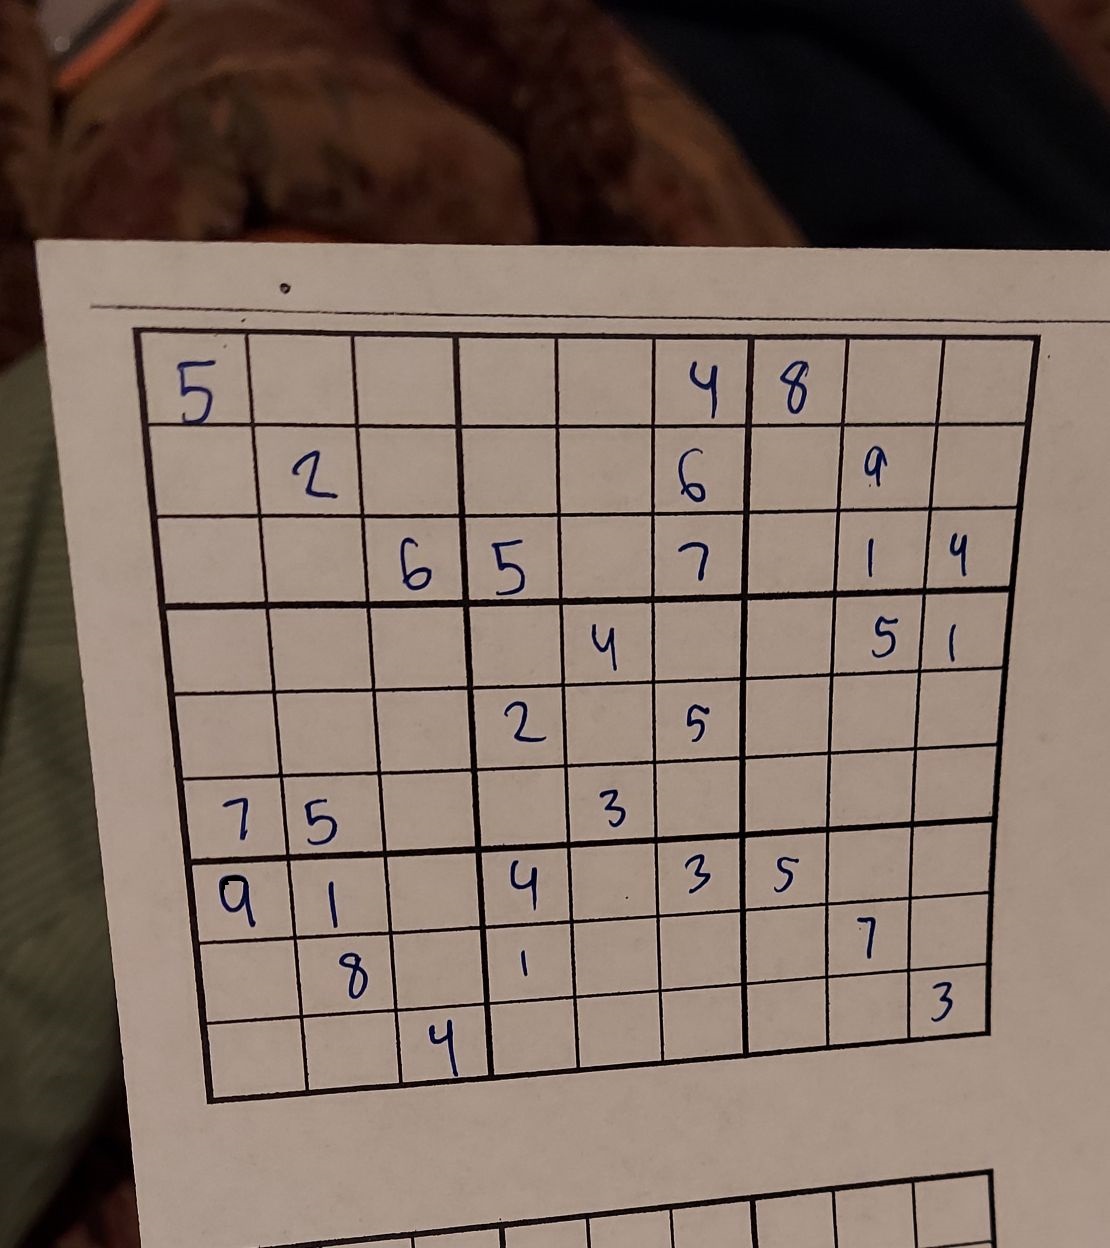 5 4 8
2 6 9
6 5 7 1 4
4 5 1
2 5
7 5 3
9 1 4 3 5
8 1 7
4 3